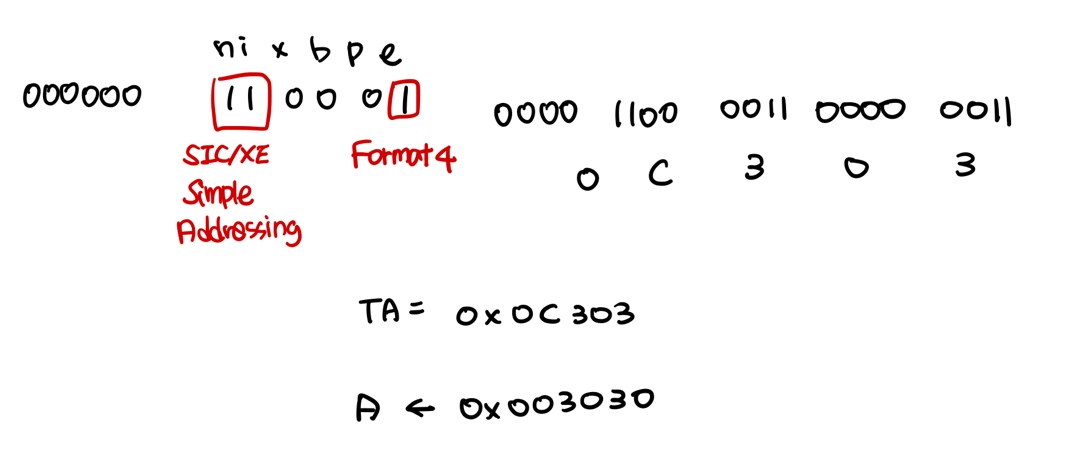 n i x b p e
000000 11 0 0 0 1 0000 1100 0011 0000 0011
SIC/XE Format 4 0 C 3 0 3
Simple
Addressing
TA = 0x0C303
A ← 0x003030